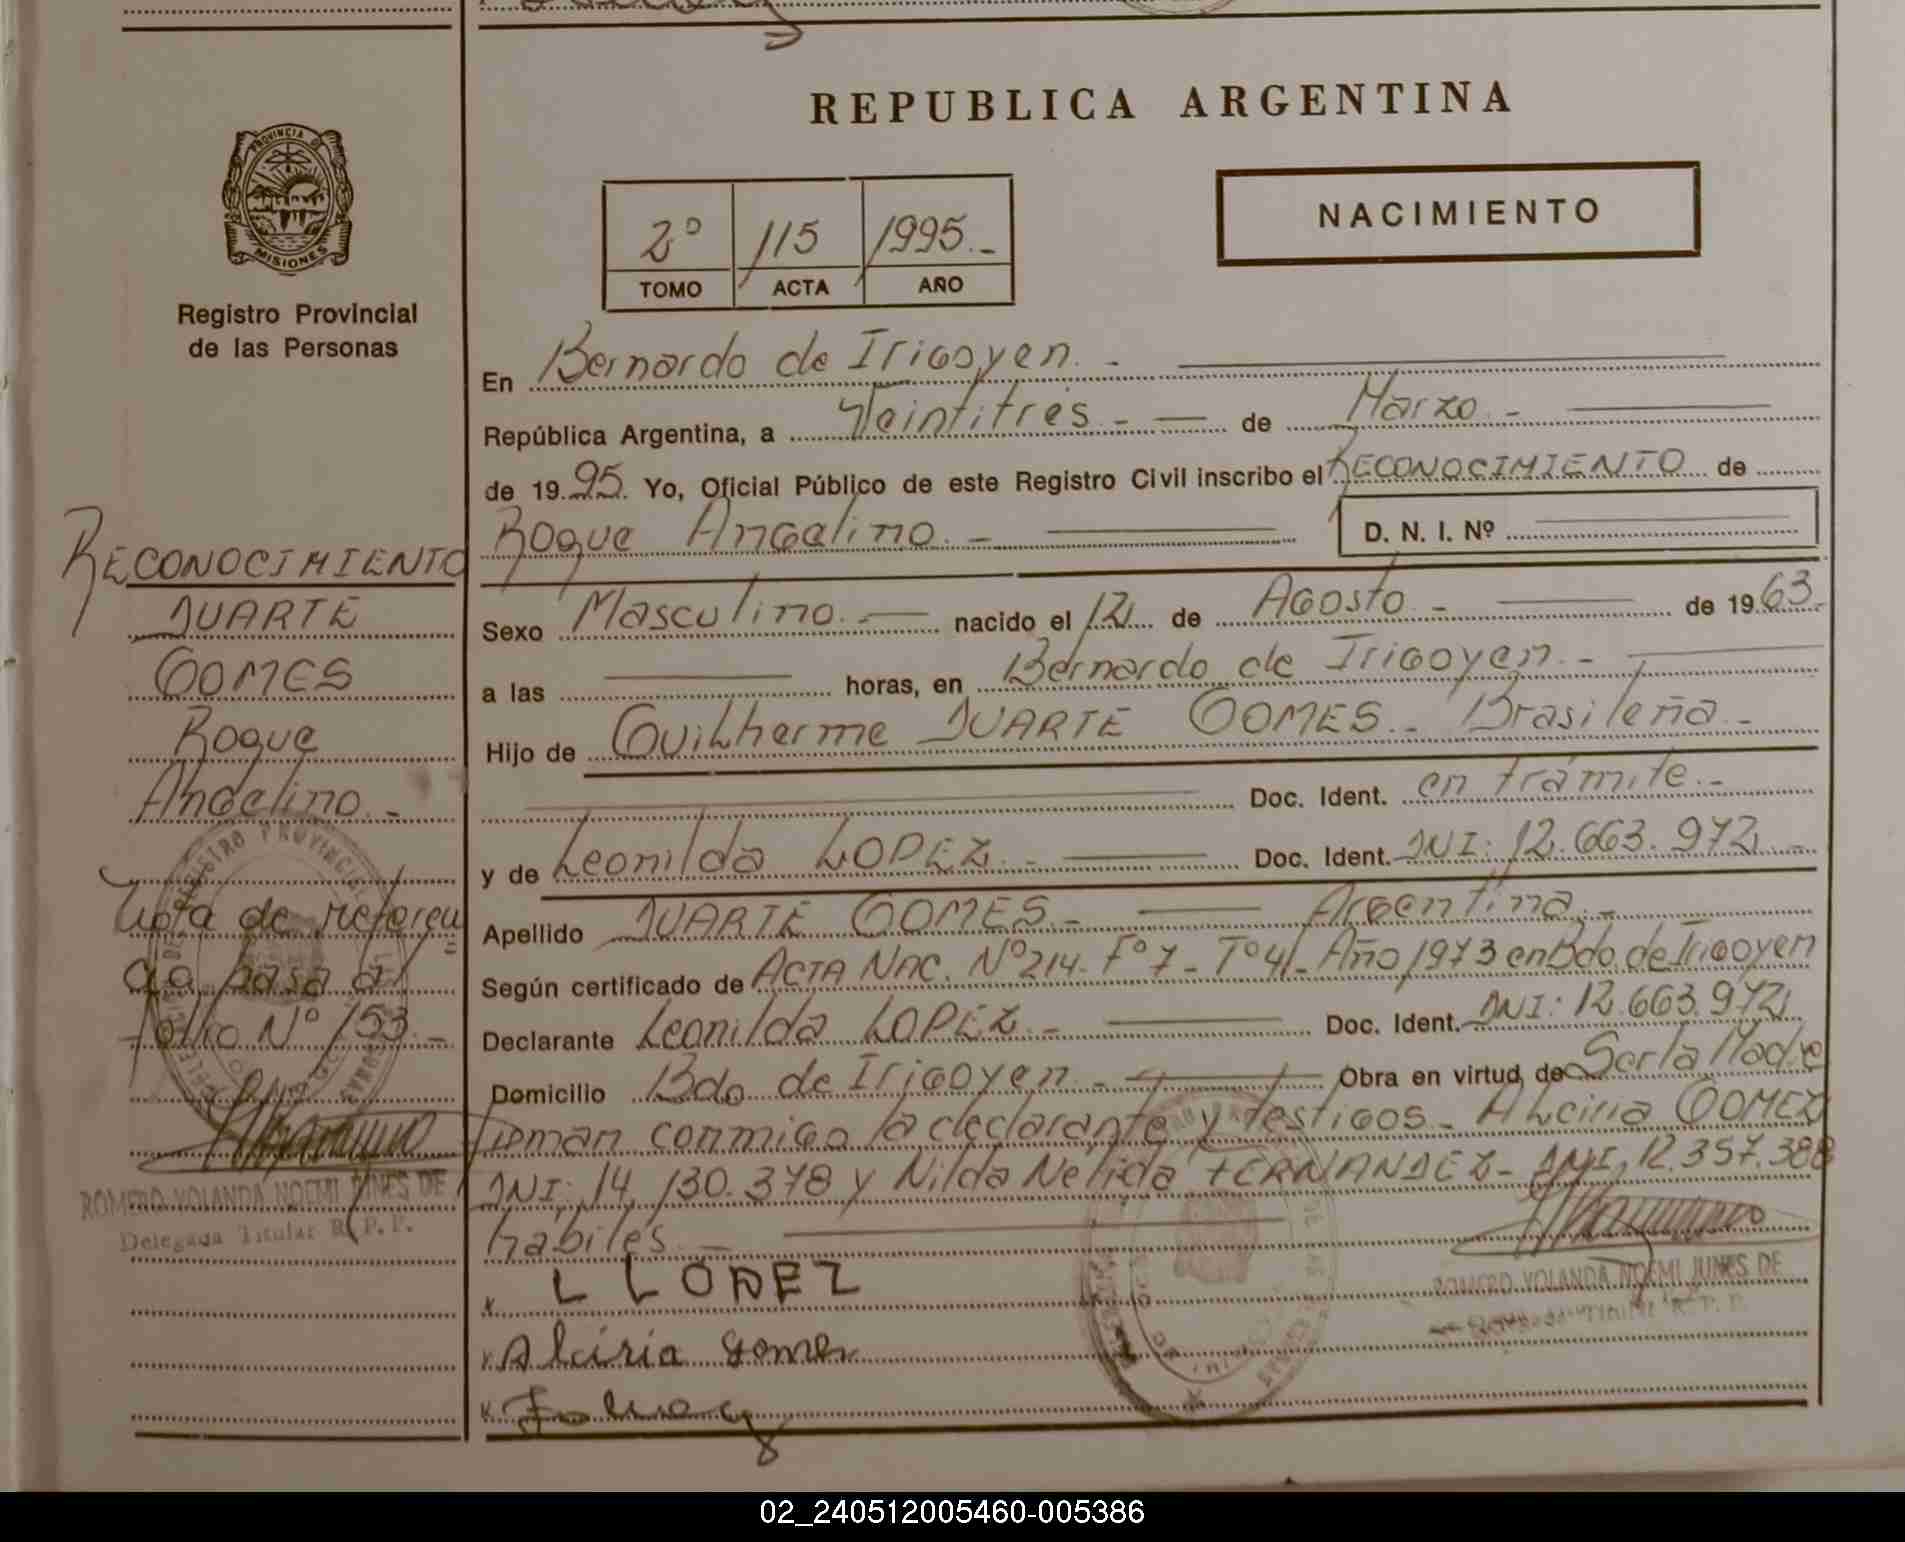 REPUBLICA ARGENTINA
PROVINCIA DE
MISIONES
Registro Provincial
de las Personas
2º 115 1995.-
TOMO ACTA AÑO
NACIMIENTO
En Bernardo de Irigoyen.-
República Argentina, a Veintitrés.- de Marzo.-
de 1995. Yo, Oficial Público de este Registro Civil inscribo el RECONOCIMIENTO de
Roque Angelino.- D. N. I. Nº
Sexo Masculino.- nacido el 12 de Agosto.- de 1963.-
a las horas, en Bernardo de Irigoyen.-
Hijo de Guilherme DUARTE GOMES.- Brasileña.-
Doc. Ident. en trámite.-
y de Leonilda LOPEZ.- Doc. Ident. DNI: 12.663.972.-
Apellido DUARTE GOMES.- Argentina.-
Según certificado de ACTA NAC. Nº 214- Fº 7- Tº 4- Año 1973 en Bdo. de Irigoyen
Declarante Leonilda LOPEZ.- Doc. Ident. DNI: 12.663.972
Domicilio Bdo de Irigoyen.- Obra en virtud de Ser la Madre
Firman conmigo la declarante y testigos- Alciria GOMEZ
DNI: 14.130.378 y Nilda Nelida FERNANDEZ- DNI. 12.357.388
hábiles.-
x L LOPEZ
x Alciria Gomez
x
ROMERO YOLANDA NOEMI JUNES DE
RECONOCIMIENTO
DUARTE
GOMES
Roque
Angelino.-
Nota de referen=
cia pasa al
folio Nº 153.-
ROMERO YOLANDA NOEMI JUNES DE
Delegada Titular R. P. P.
02_240512005460-005386